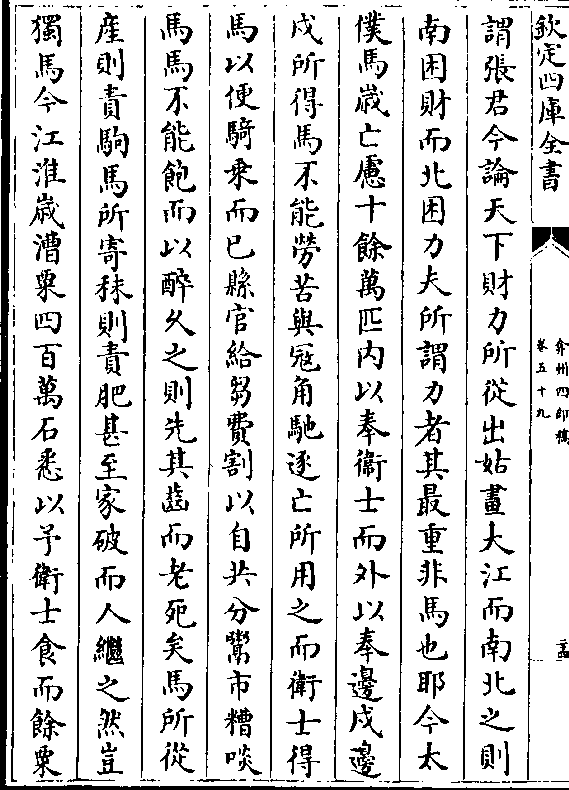 欽定四庫全書
弇州四部稿
卷五十九
謂張君今論天下財力所從出姑畫大江而南北之則
南困財而北困力夫所謂力者其最重非馬也耶今太
僕馬歲亡慮十餘萬匹内以奉衞士而外以奉邊戍邊
戍所得馬不能勞苦與冦角馳逐亡所用之而衛士得
馬以便騎乗而已縣官給芻費割以自共分鬻市糟啖
馬馬不能飽而以醉久之則先其齒而老死矣馬所從
産則責駒馬所寄秣則責肥甚至家破而人繼之然豈
獨馬今江淮歲漕粟四百萬石悉以予衛士食而餘粟